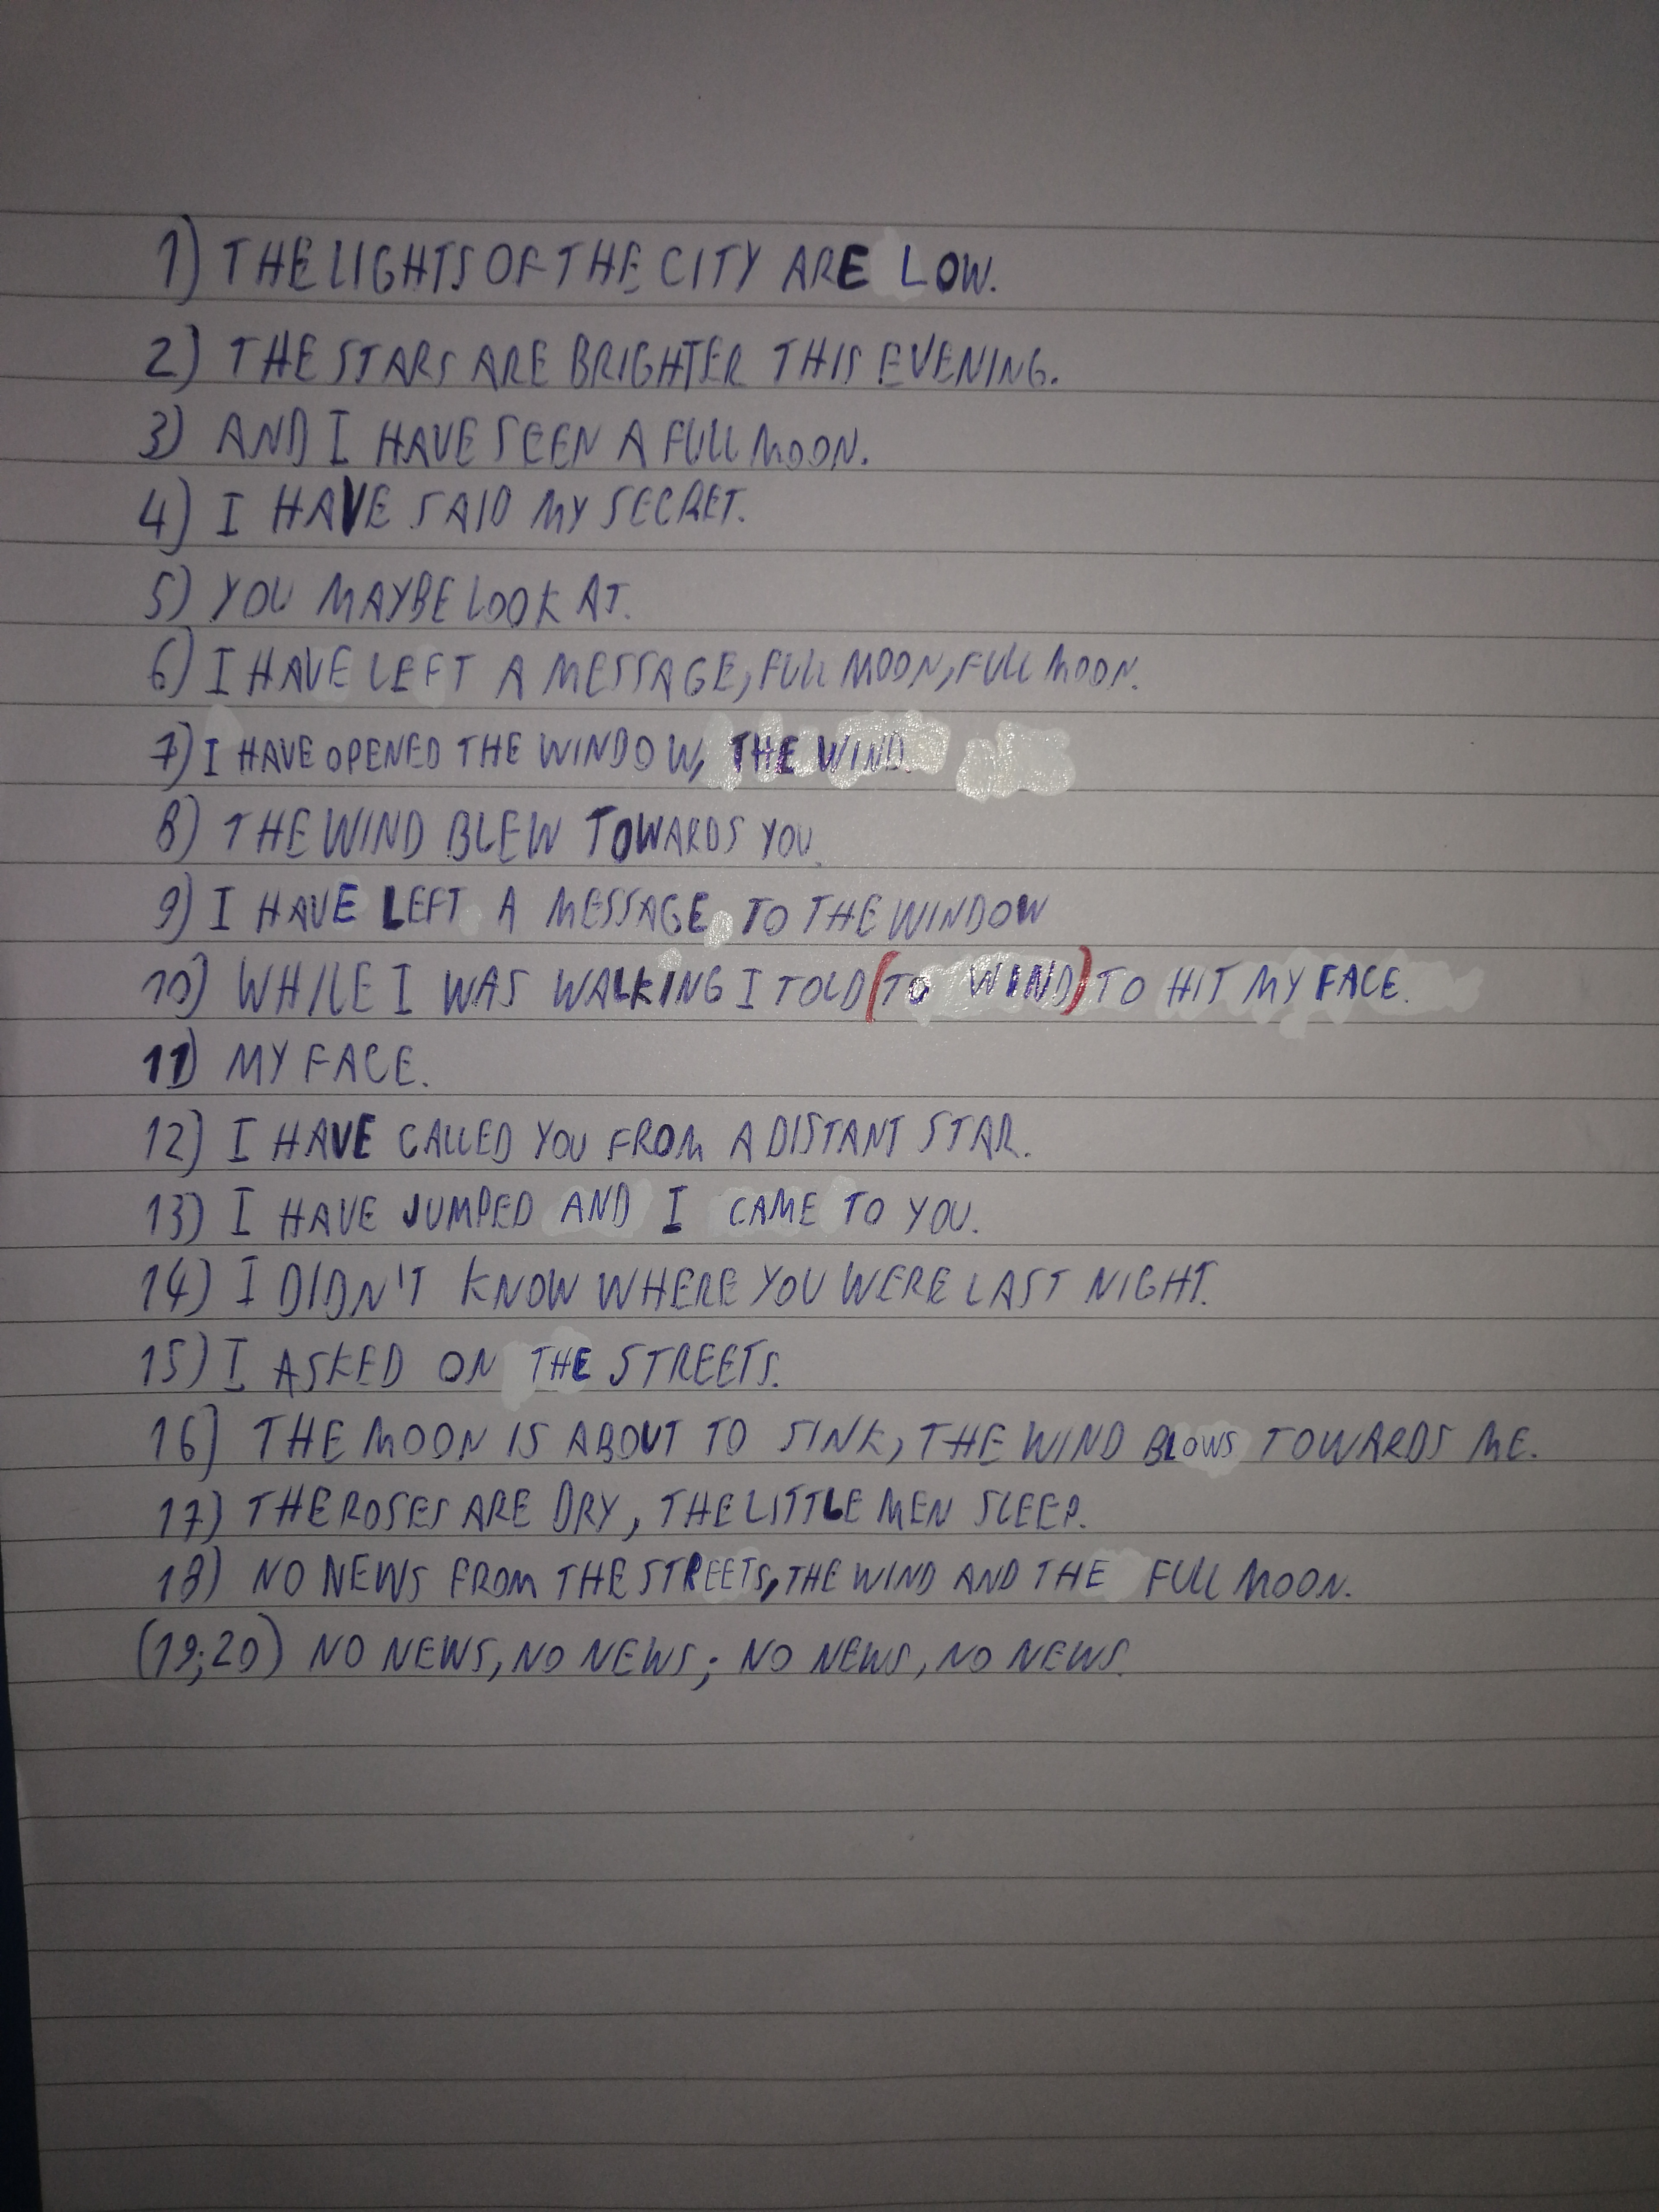 1) THE LIGHTS OF THE CITY ARE LOW.
2) THE STARS ARE BRIGHTER THIS EVENING.
3) AND I HAVE SEEN A FULL MOON.
4) I HAVE SAID MY SECRET.
5) YOU MAYBE LOOK AT.
6) I HAVE LEFT A MESSAGE, FULL MOON, FULL MOON.
7) I HAVE OPENED THE WINDOW, THE WIND.
8) THE WIND BLEW TOWARDS YOU.
9) I HAVE LEFT A MESSAGE, TO THE WINDOW
10) WHILE I WAS WALKING I TOLD (TO WIND) TO HIT MY FACE.
11) MY FACE.
12) I HAVE CALLED YOU FROM A DISTANT STAR.
13) I HAVE JUMPED AND I CAME TO YOU.
14) I DIDN'T KNOW WHERE YOU WERE LAST NIGHT.
15) I ASKED ON THE STREETS.
16) THE MOON IS ABOUT TO SINK, THE WIND BLOWS TOWARDS ME.
17) THE ROSES ARE DRY, THE LITTLE MEN SLEEP.
18) NO NEWS FROM THE STREETS, THE WIND AND THE FULL MOON.
(19;20) NO NEWS, NO NEWS; NO NEWS, NO NEWS.